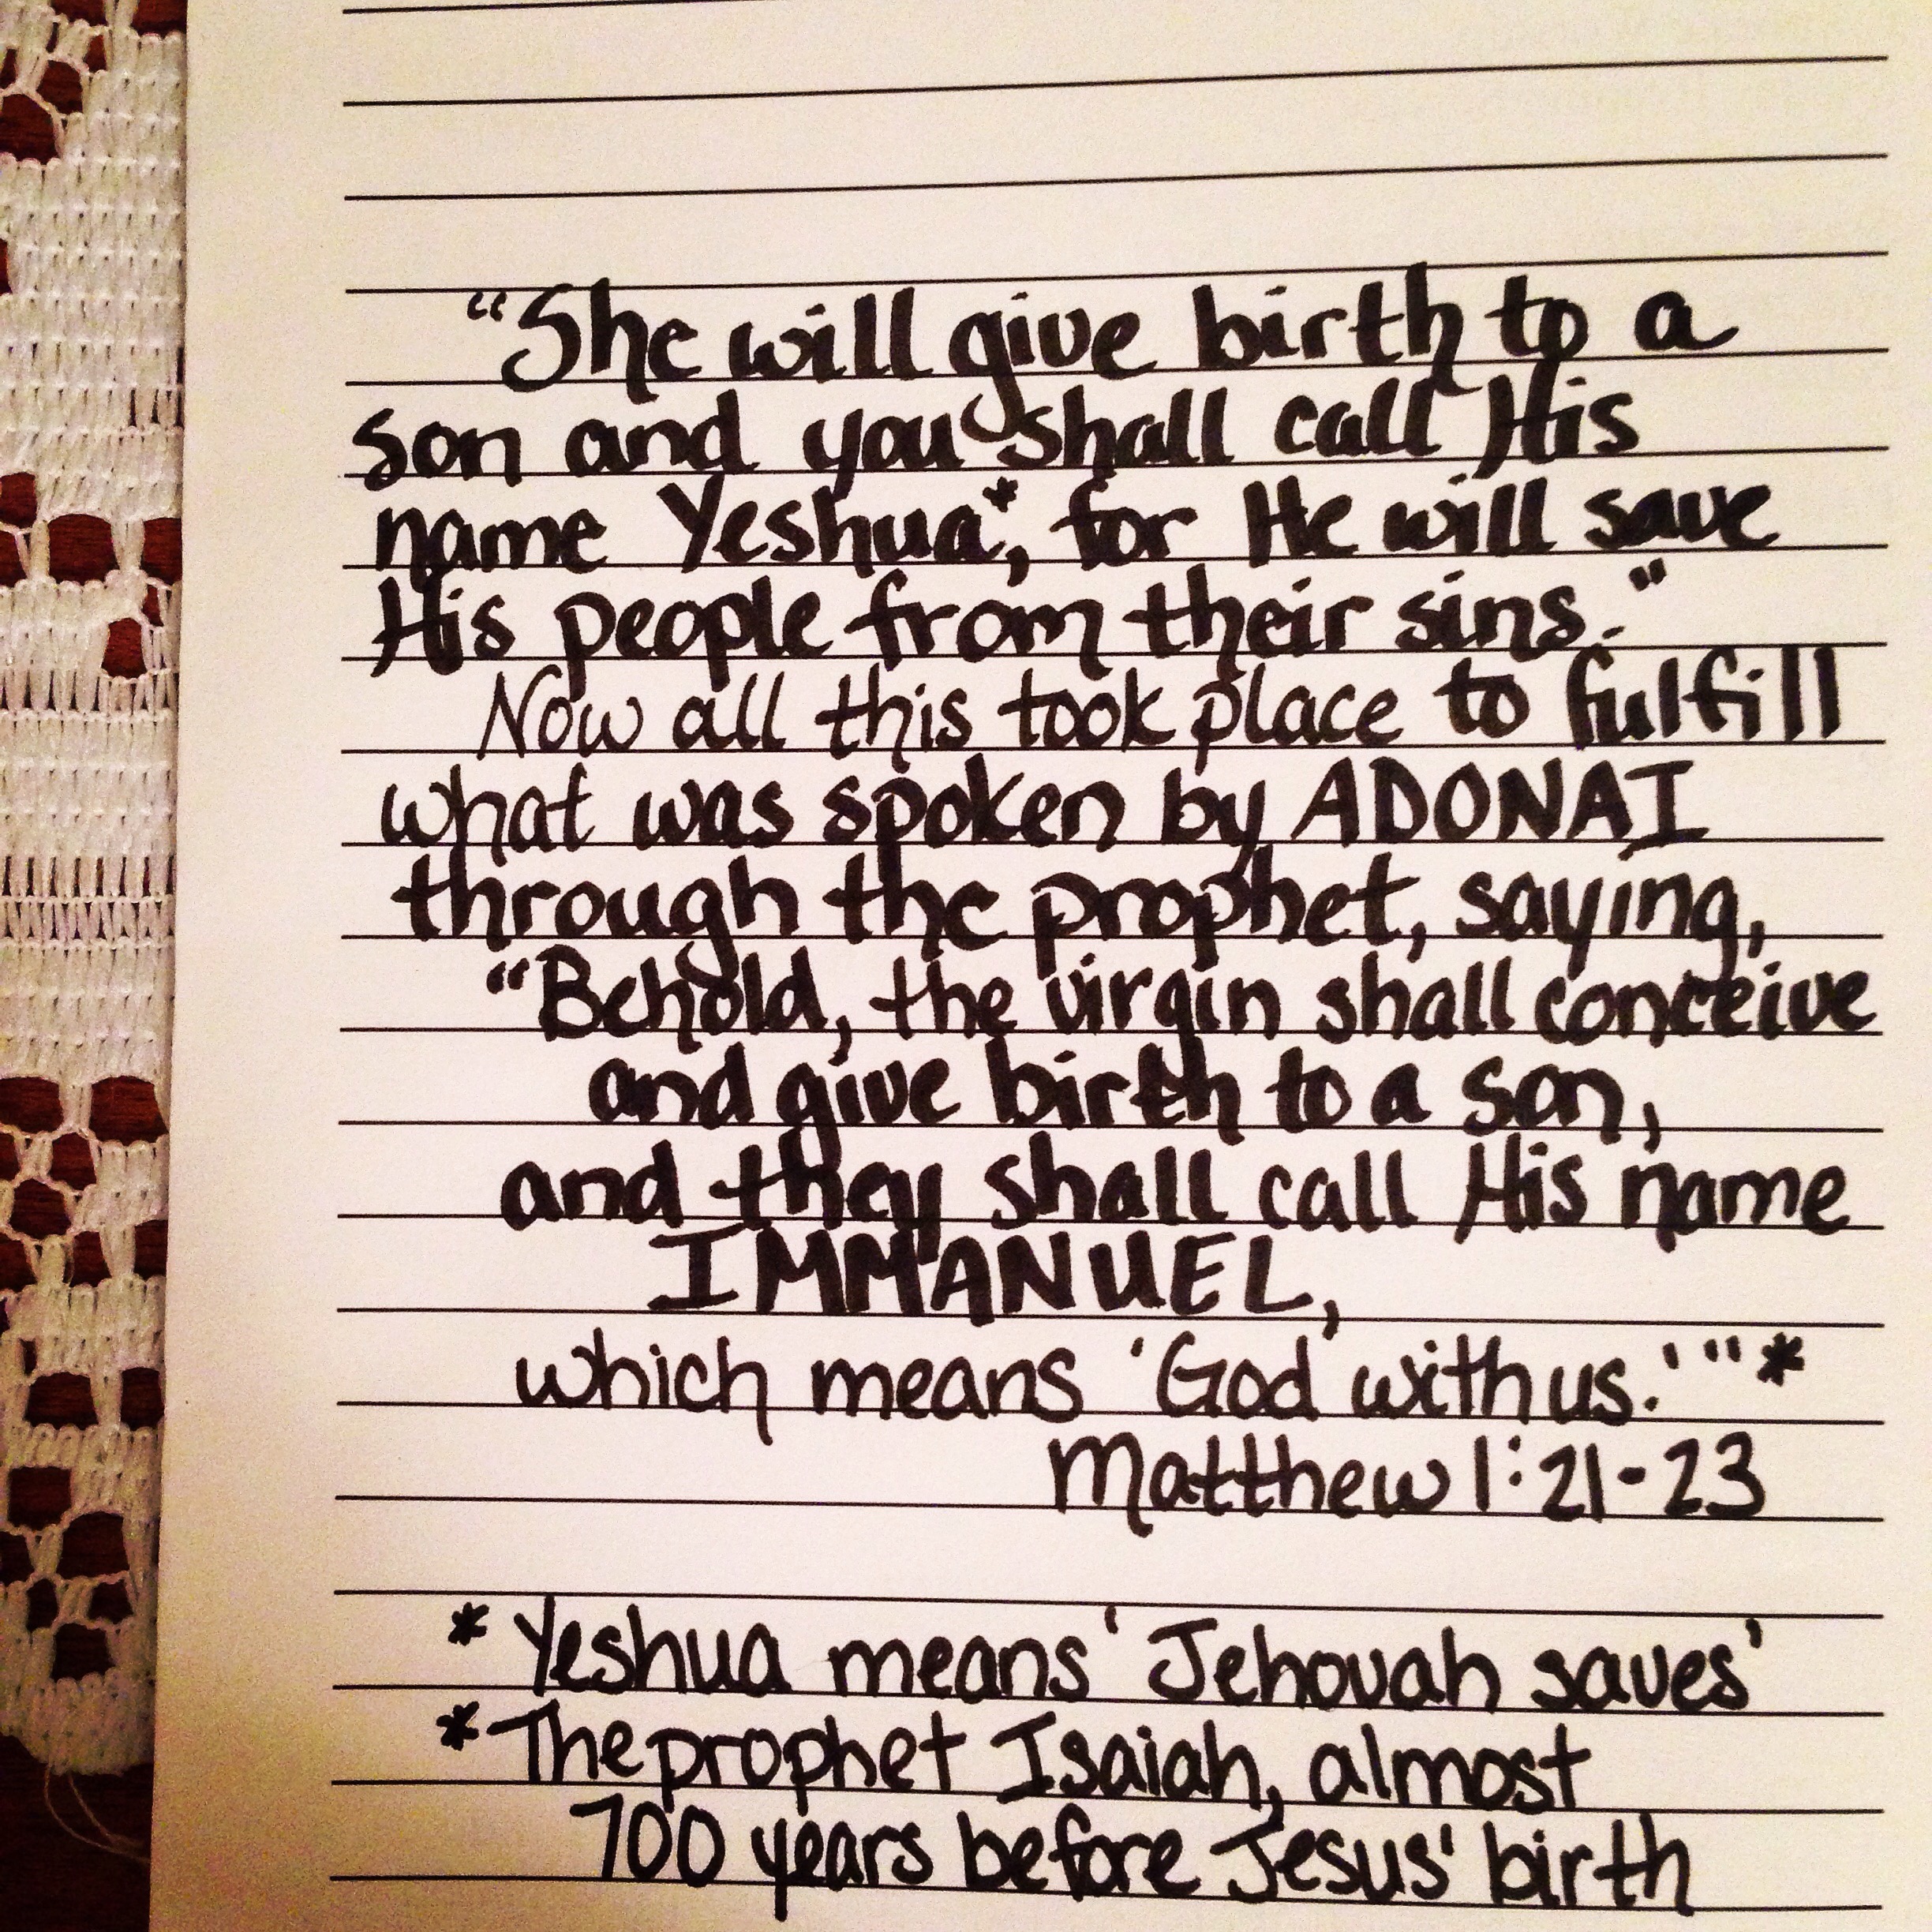 “She will give birth to a
son and you shall call His
name Yeshua*, for He will save
His people from their sins.”
Now all this took place to fulfill
what was spoken by ADONAI
through the prophet, saying,
“Behold, the virgin shall conceive
and give birth to a son,
and they shall call His name
IMMANUEL,
which means ‘God with us.’”*
Matthew 1:21-23
* Yeshua means ‘Jehovah saves’
* The prophet Isaiah, almost
700 years before Jesus' birth